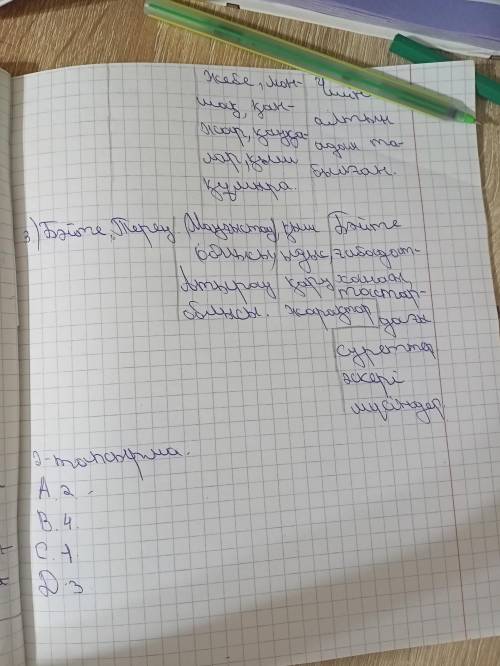 жебе, мон-
шақ, қан-
жар, қаңқа-
лар, қыш
құмыра.
Үшін
алтын
адам та-
былған.
3) Бәйте, Терең
Маңғыстау
облысы,
Атырау
облысы.
қыш
ыдыс,
қару
жарақтар
Бәйте
ғибадат-
ханасы,
тастар-
дағы
суреттер
әскері
мүсіндер
2-тапсырма.
А. 2
В. 4.
С. 1
Д. 3